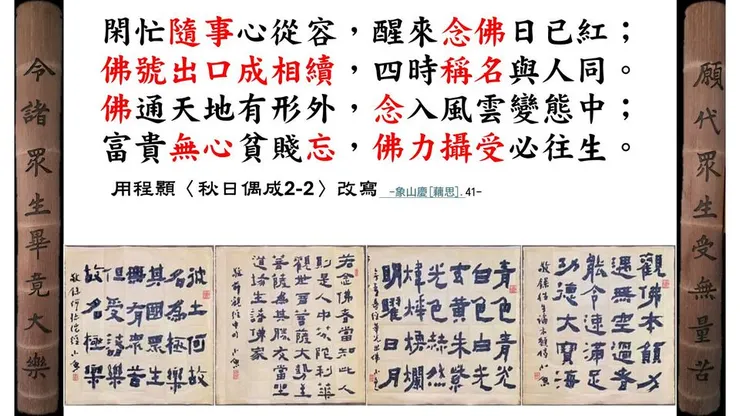 閑忙隨事心從容，醒來念佛日已紅；
佛號出口成相續，四時稱名與人同。
佛通天地有形外，念入風雲變態中；
富貴無心貧賤忘，佛力攝受必往生。
用程顥〈秋日偶成2-2〉改寫 -象山慶[藕思].41-
願代眾生受無量苦
令諸眾生畢竟大樂
觀佛本願力
遇無空過者
能令速滿足
功德大寶海
青色青光
白色白光
玄黃朱紫
光色亦然
煒燁煥爛
明曜日月
若念佛者當知此人
則是人中芬陀利華
觀世音菩薩大勢至
菩薩為其勝友當坐
道場生諸佛家
彼土何故
名為極樂
其國眾生
無有眾苦
但受諸樂
故名極樂